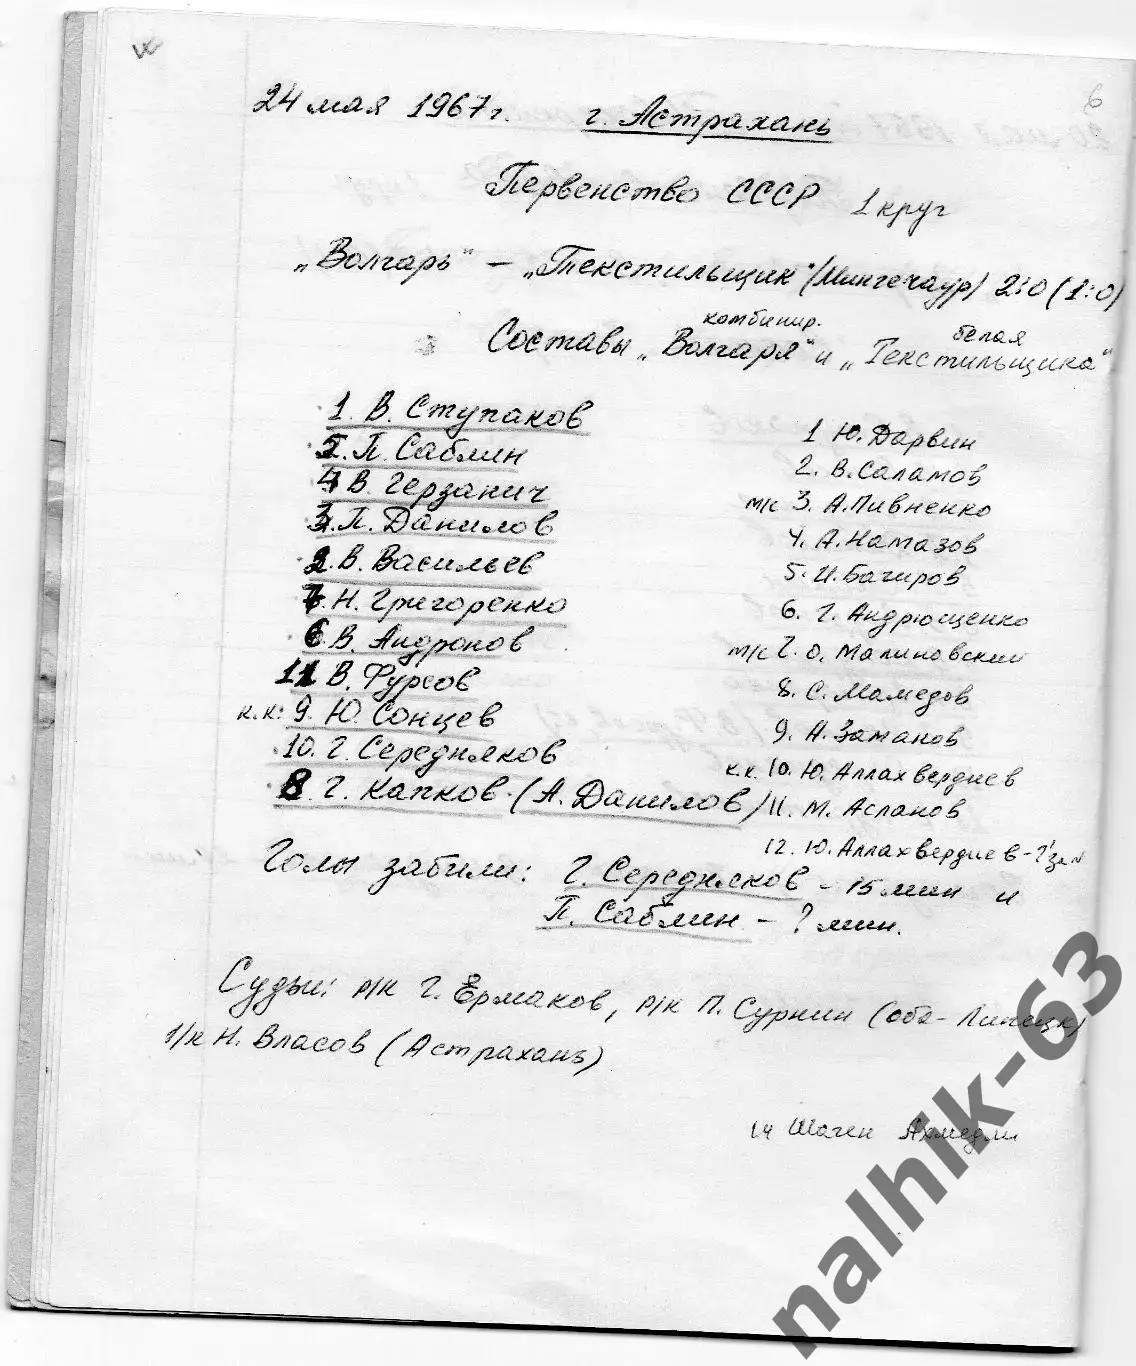 6
24 мая 1967 г. г. Астрахань
Первенство СССР 1 круг
„Волгарь" – „Текстильщик" (Мингечаур) 2:0 (1:0)
комбинир. белая
Составы „Волгаря" и „Текстильщика"
1. В. Ступаков
5. П. Саблин
4. В. Герзанич
3. П. Данилов
2. В. Васильев
7. Н. Григоренко
6. В. Андронов
11. В. Фурсов
к.к: 9. Ю. Сонцев
10. Г. Середняков
8. Г. Капков. (А. Данилов)
1 Ю. Дарвин
2. В. Саламов
м/с 3. А. Пивненко
4. А. Намазов
5. И. Багиров
6. Г. Андрющенко
м/с 7. О. Малиновский
8. С. Мамедов
9. А. Заманов
к.к. 10. Ю. Аллахвердиев
11. М. Асланов
12. Ю. Аллахвердиев-
Голы забили: Г. Середняков – 15 мин и
П. Саблин – ? мин.
Судьи: р/к Г. Ермаков, р/к П. Сурнин (оба – Липецк)
1/к Н. Власов (Астрахань)
14 Шаген
nalhik-63